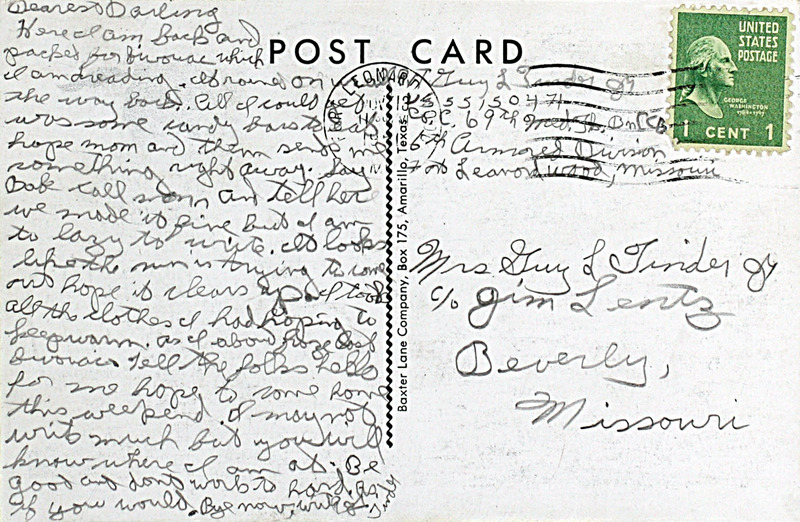 Dearest Darling
Here I am back and
packed for bivouac which
I am dreading. It rained on
the way back. All I could get
was some candy bars to eat
hope mom and them send me
something right away. Say
Babe call mom an tell her
we made it fine but I am
to lazy to write. It looks
like the sun is trying to come
out hope it clears up. I took
all the clothes I had hoping to
keep warm. as I about froze last
bivouac. Tell the folks hello
for me hope to come home
this weekend. I may not
write much but you will
know where I am at. Be
good and dont work to hard. as
if you would. Bye now, with
POST CARD
UNITED
STATES
POSTAGE
GEORGE
WASHINGTON
1789-1797
1 CENT 1
FORT LEONARD
Guy L Tinder Jr
Co. C. 69th Med. Tk. Bn CCB
6th Armored Division
Ft Leonard Wood, Missouri
Baxter Lane Company, Box 175, Amarillo, Texas
Mrs Guy L Tinder Jr
c/o Jim Lentz
Beverly,
Missouri